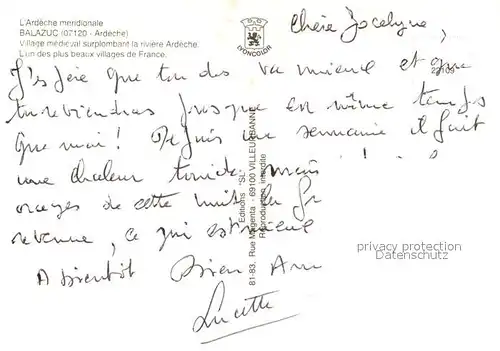 L'Ardèche méridionale
BALAZUC (07120 - Ardèche)
Village médiéval surplombant la rivière Ardèche.
L'un des plus beaux villages de France.
LYONCOLOR
Chère Jocelyne,
22109
J'espère que ton dos va mieux et que
tu reviendras presque en même temps
que moi ! Depuis une semaine il fait
une chaleur torride, mais
orages de cette nuit la
revenue, ce qui est
A bientôt Bien
Lucette
Editions "SL"
81-83, Rue Magenta - 69100 VILLEURBANNE
Reproduction interdite
privacy protection
Datenschutz